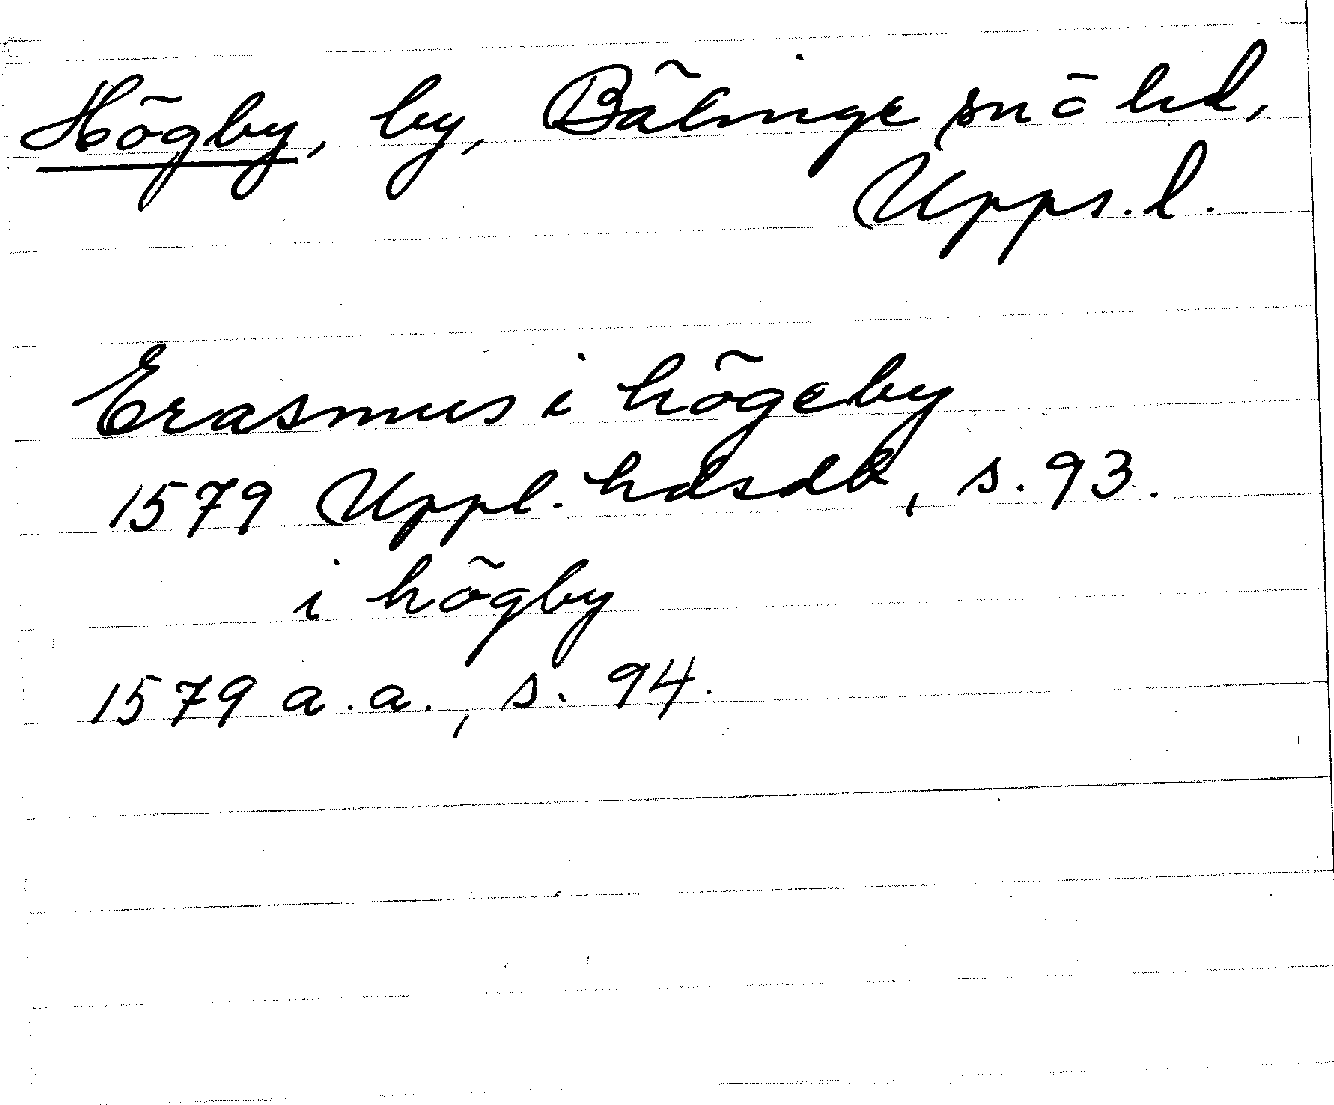 Högby, by, Bälinge sn ō hd,
Upps. l.
Erasmus i högeby
1579 Uppl. hdsdb, s. 93.
i högby
1579 a.a., s. 94.